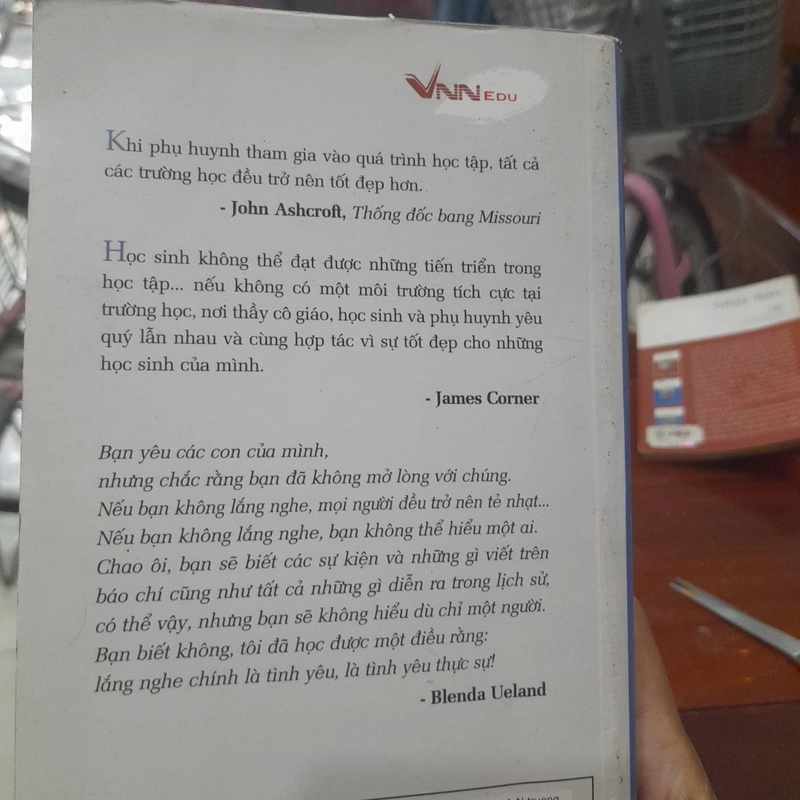 VNN EDU
Khi phụ huynh tham gia vào quá trình học tập, tất cả
các trường học đều trở nên tốt đẹp hơn.
- John Ashcroft, Thống đốc bang Missouri
Học sinh không thể đạt được những tiến triển trong
học tập... nếu không có một môi trường tích cực tại
trường học, nơi thầy cô giáo, học sinh và phụ huynh yêu
quý lẫn nhau và cùng hợp tác vì sự tốt đẹp cho những
học sinh của mình.
- James Corner
Bạn yêu các con của mình,
nhưng chắc rằng bạn đã không mở lòng với chúng.
Nếu bạn không lắng nghe, mọi người đều trở nên tẻ nhạt...
Nếu bạn không lắng nghe, bạn không thể hiểu một ai.
Chao ôi, bạn sẽ biết các sự kiện và những gì viết trên
báo chí cũng như tất cả những gì diễn ra trong lịch sử,
có thể vậy, nhưng bạn sẽ không hiểu dù chỉ một người.
Bạn biết không, tôi đã học được một điều rằng:
lắng nghe chính là tình yêu, là tình yêu thực sự!
- Blenda Ueland